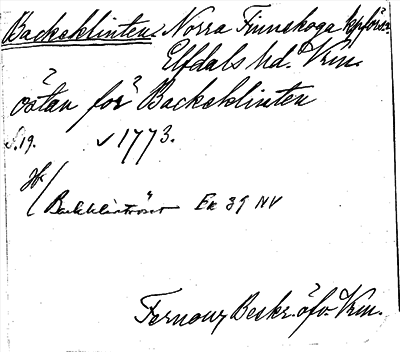 Backaklinten Norra Finnskoga kpförs.
Elfdals hd. Vrm.
östan för Backaklinten
S. 19. v 1773.
Hk
Backklintröset Ek 39 NV
Fernow, Beskr. öfv. Vrm.